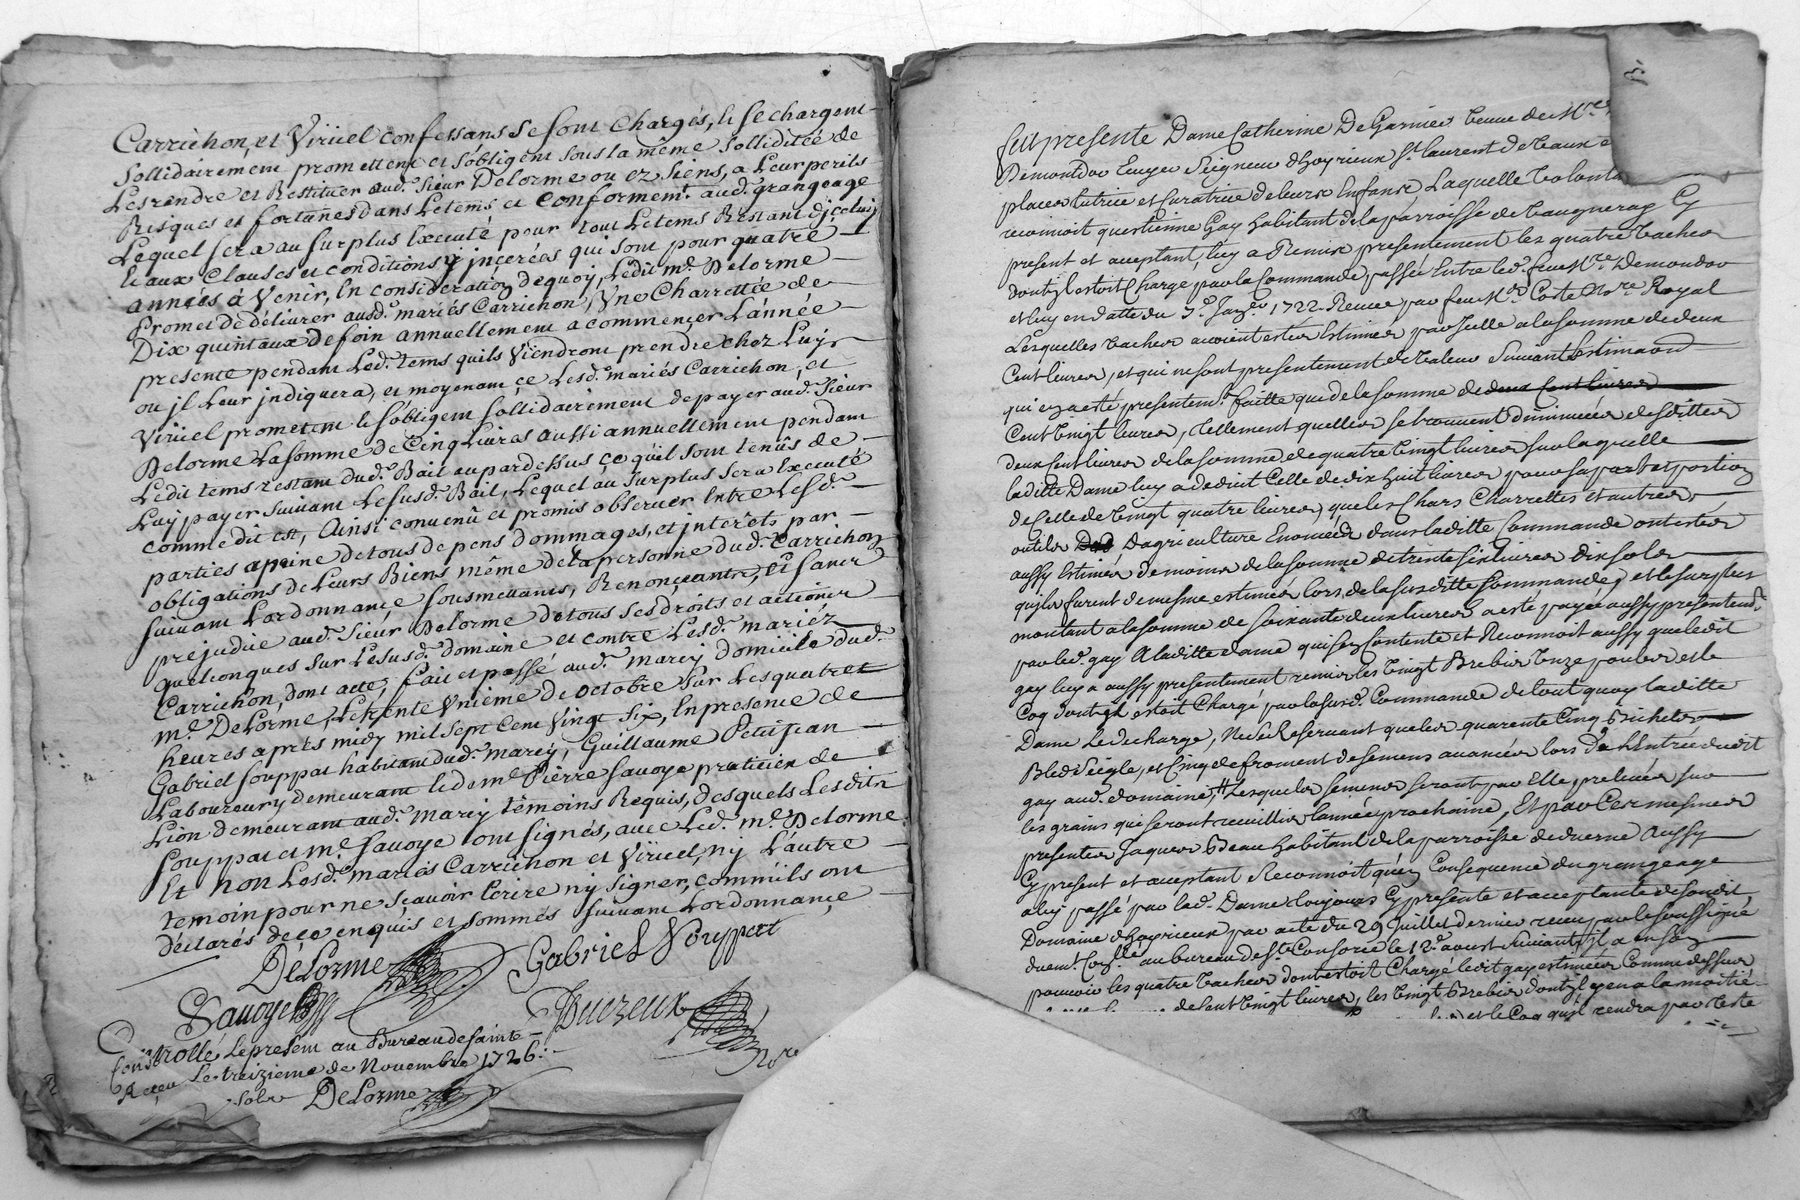 Carrichon, et Virieel confessans se sont chargés, et se chargent
sollidairement promettent et s'obligent sous la même sollidité de
Les rendre et Restituer aud. sieur Delorme ou ez siens, a Leur perils
Risques et fortunes dans Le tems, et conforment. aud. grangeage
Lequel sera au surplus Executé pour tout Le tems Restant dicelui
et aux Clauses et conditions y incerées qui sont pour quatre
années à Venir, En considération dequoy, Ledit me. Delorme
promet de délivrer ausd. mariés Carrichon, Une Charrettée de
Dix quintaux de foin annuellement a commencer L'année
presente pendant Led. tems quils Viendront prendre chez Luy
ou il Leur indiquera, et moyenant çe Lesd. mariés Carrichon, et
Virieel promettent et s'obligent sollidairement de payer aud. sieur
Delorme La somme de Cinq Livres aussi annuellement pendant
Ledit tems restant dud. Bail au pardessus ce qu'il sont tenûs de
Luy payer suivant Le susd. Bail, Lequel au surplus sera Executé
comme dit est, Ainsi convenû et promis observer Entre Lesd.
parties a peine de tous depens dommages, et interêts par
obligations de Leurs Biens même de la personne dud. Carrichon
suivant L'ordonnançe sousmettants, Renonçeants, et sans
prejudice aud. sieur Delorme de tous ses droits et actions
quelconques sur Le susd. domaine et contre Lesd. mariéz
Carrichon, dont acte, fait et passé aud. marcy domicile dud.
me. Delorme, Le trente Unième de octobre sur Les quatre
heures après midy mil sept Cent Vingt six, En presence de
Gabriel souppat habitant dud. marcy, Guillaume Petitjean
Laboureur y demeurant et de me. Pierre savoye praticien de
Lion demeurant aud. marcy têmoins Requis, desquels Lesdits
souppat et me. savoye ont signés, avec Led. me. Delorme
Et non Lesd. mariés Carrichon et Virieel, ny L'autre
temoin pour ne sçavoir Ecrire ny signer, comm'ils ont
déclarés de ce enquis et sommés suivant L'ordonnançe
DeLorme Gabriel Souppat
Savoye Ducreux
Nore
Controllé Le present au Bureau de sainte
Le treizieme de Novembre 1726.
DeLorme
fut presente Dame Catherine De Garnier Veuve de Mre
Demondor Ecuyer Seigneur dhoyrieux St. laurent de Vaux
place tutrice et curatrice de leurs Enfans, Laquelle
reconnoit questienne Gay habitant de la parroisse de Vaugneray Cy
present et acceptant, luy a Remis presentement les quatre Vaches
dont il estoit Chargé par la Commande, passée Entre led. feu Mre Demondor
et luy en datte du 5e. Janer. 1722. Receue par feu Me. Coste Nore Royal
Lesquelles Vaches avoient estées Estimées par Icelle a la somme de deux
Cent livres, et qui ne sont presentement de Valeur Suivant lestimaon
qui en a esté presentemt. faitte que de la somme de deux Cent livres
Cent Vingt livres, tellement quelles se trouvent diminuées desdittes
deux Cent livres de la somme de quatre Vingt livres sur laquelle
laditte Dame luy a deduit Celle de dix huit livres pour sa part et portion
de Celle de Vingt quatre livres, que les Chars Charrettes et autres
outils Dagriculture Enoncéz dans laditte Commande ont estés
aussy Estimés de moins de la somme de trente six livres dix sols
quils furent de mesme estimés lors de la susditte Commande, et le surplus
montant a la somme de soixante deux livres a esté payé aussy presentemt.
par led. gay A laditte dame qui sen Contente et Reconnoit aussy que ledit
gay luy a aussy presentement remis les Vingt Brebis Onze poules et le
Coq dont il estoit Chargé par la susd. Commande de tout quoy laditte
Dame Le descharge, Ne se Reservant que les quarente Cinq Bichets
Bled Seigle, et Cinq de froment de semens avancées lors De L'Entrée dudit
gay aud. domaine, Lesquelles semens seront par Elle prelevées sur
les grains qui seront recueillis l'année prochaine, Et par Ces mesmes
presentes Jaques Beau habitant de la parroisse de duerne Aussy
Cy present et acceptant Reconnoit quen Consequence du grangeage
a luy passé par lad. Dame toujours Cy presente et acceptante de sondit
Domaine dhoyrieux par acte du 29 Juillet dernier receu par le soussigné
duemt. Conllé au bureau de Ste. Consorce le 12e. aoust suivant, il a en son
pouvoir les quatre Vaches dont estoit Chargé ledit gay estimées Comme dessus
de Cent Vingt livres, les Vingt Brebis dont il y en a la moitié
et le Coq qu'il rendra par Teste